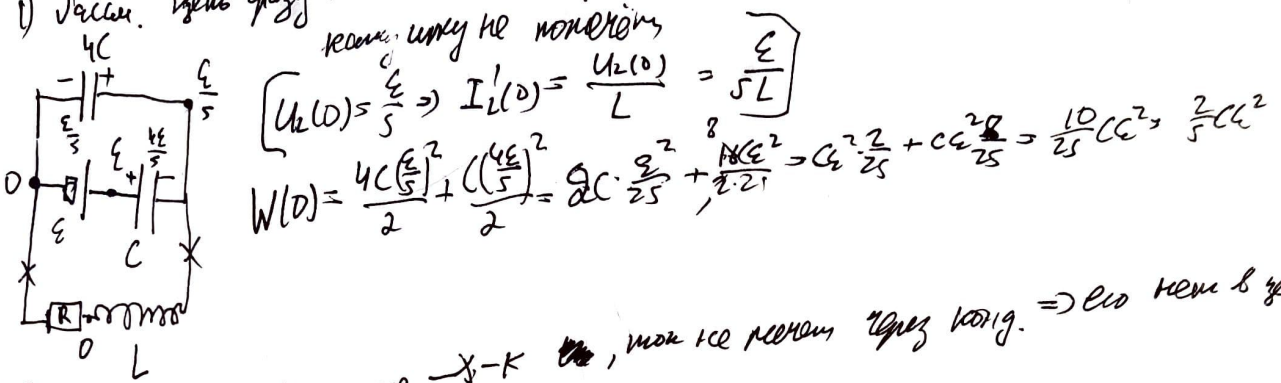 1) Рассм. цепь сразу
конд. [unclear] не потечёт
4C
- +
ℰ/5
ℰ/5 ℰ 4ℰ/5
0 + -
ℰ C
R
0 L
[U₂(0) = ℰ/5 ⇒ I'_L(0) = U₂(0)/L = ℰ/5L]
W(0) = 4C(ℰ/5)²/2 + C(4ℰ/5)²/2 = 2C·ℰ²/25 + 8Cℰ²/2·25 = Cℰ²·2/25 + Cℰ²8/25 = 10/25 Cℰ² = 2/5 Cℰ²
, ток не течёт через конд. ⇒ его нет в